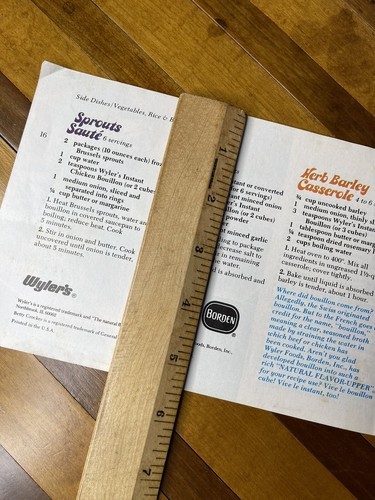 Side Dishes/Vegetables, Rice &
16
Sprouts
Sauté 6 servings
2 packages (10 ounces each)
Brussels sprouts
1 cup water
2 teaspoons Wyler's Instant
Chicken Bouillon (or 2 cubes)
1 medium onion, sliced and
separated into rings
¼ cup butter or margarine
1. Heat Brussels sprouts, water and
bouillon in covered saucepan to
boiling; reduce heat. Cook
5 minutes.
2. Stir in onion and butter. Cook
uncovered until onion is tender,
about 5 minutes.
Wyler's®
Wyler's is a registered trademark and "The natural
Northbrook, Il. 60062
Betty Crocker is a registered trademark of General
Printed in the U.S.A.
1
2
3
4
5
6
7
instant or converted
or 6 servings)
instant minced onion
instant
Bouillon (or 2 cubes)
powder
minced garlic
according to package
increase salt in
remaining
water.
is absorbed and
BORDEN
Foods, Borden, Inc.,
Herb Barley
Casserole 4 to 6
¾ cup uncooked barley
1 medium onion, sliced
3 teaspoons Wyler's Instant
Bouillon (or 3 cubes)
1 tablespoon butter or marg
¼ teaspoon dried rosemary
2 cups boiling water
1. Heat oven to 400°. Mix all
ingredients in ungreased 1½-q
casserole; cover tightly.
2. Bake until liquid is absorbed
barley is tender, about 1 hour.
Where did bouillon come from?
Allegedly, the Swiss originated
bouillon. But to the French goes
credit for the name, "bouillon,"
meaning a clear, seasoned broth
made by straining the water in
which beef or chicken has
been cooked. Aren't you glad
Wyler Foods, Borden, Inc., has
developed bouillon into such a
rich "NATURAL FLAVOR-UPPER"
for your recipe use? Vive le bouillon
cube! Vive le instant, too!